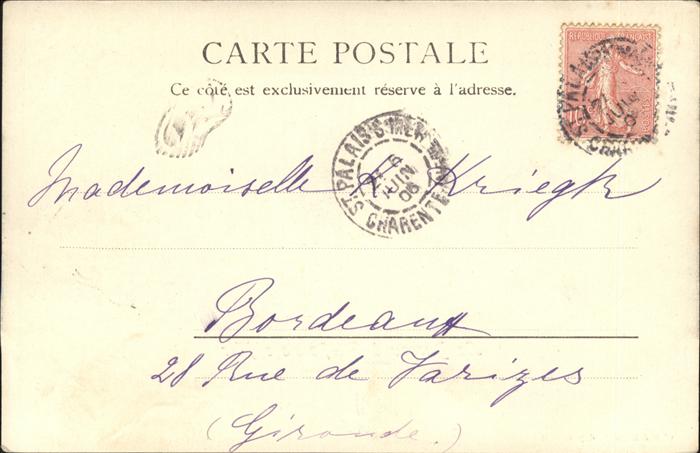 CARTE POSTALE
Ce côté est exclusivement réservé à l'adresse.
RÉPUBLIQUE FRANÇAISE
ST PALAIS S MER
JUIN
06
CHARENTE
Mademoiselle de Kriegk
Bordeaux
28 Rue de Varizes
(Gironde.)